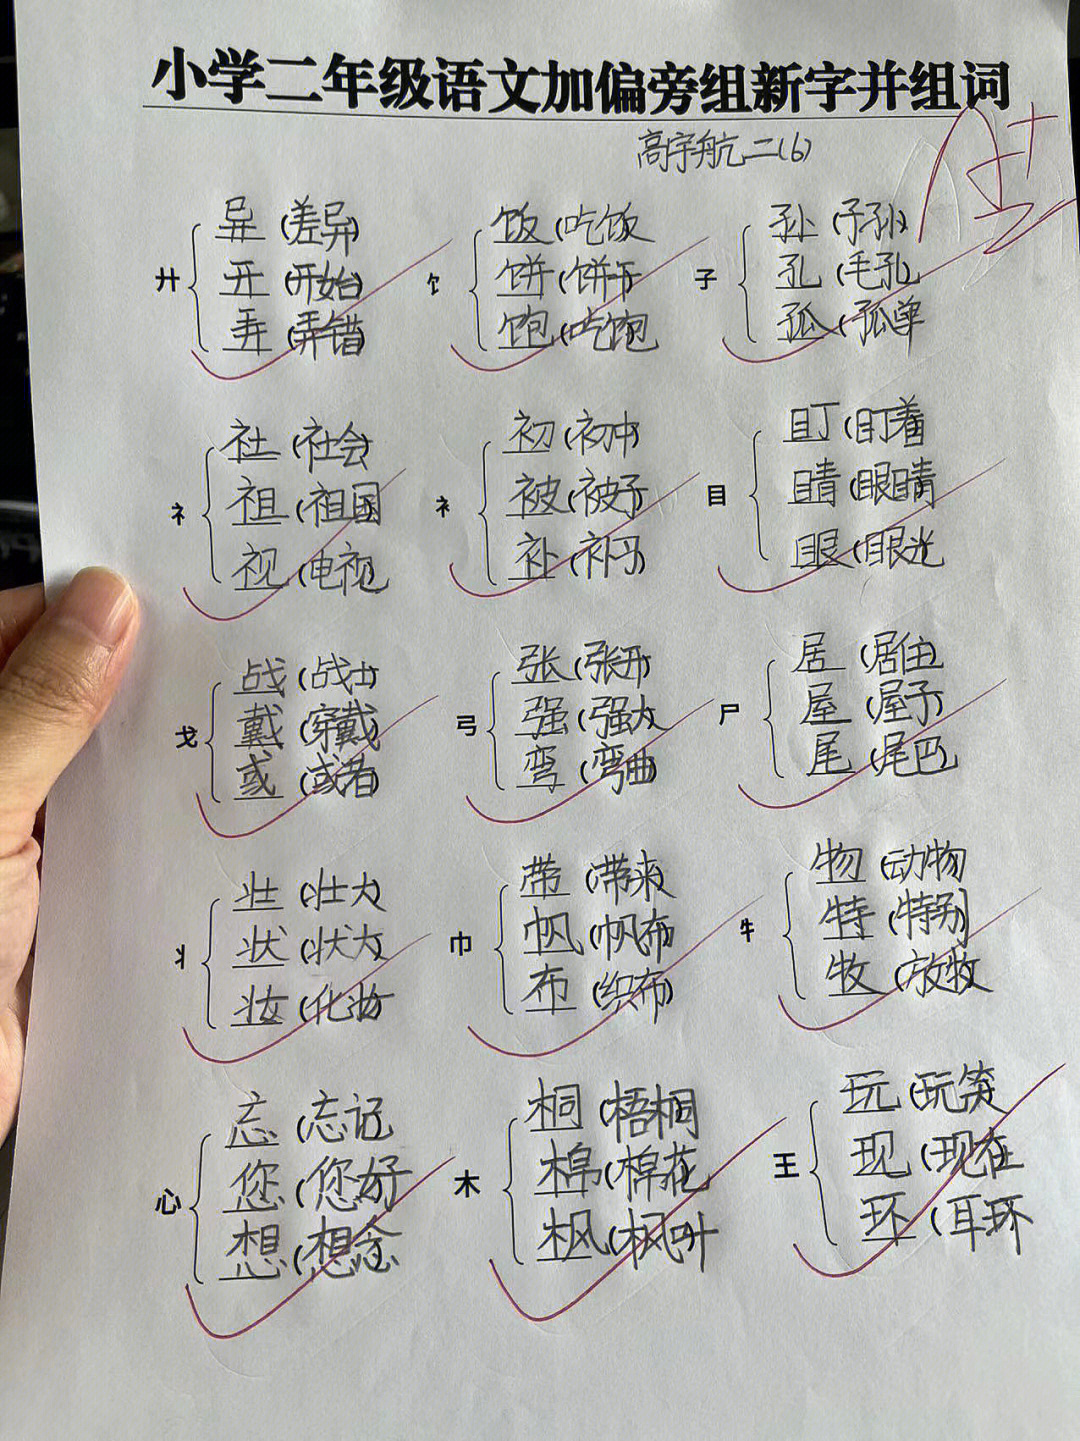 小学二年级语文加偏旁组新字并组词
高宇航 二(6)
异(差异) 饭(吃饭) 孙(子孙)
廾 开(开始) 饣 饼(饼干) 子 孔(毛孔)
弄(弄错) 饱(吃饱) 孤(孤单)
社(社会) 初(初中) 盯(盯着)
礻 祖(祖国) 衤 被(被子) 目 睛(眼睛)
视(电视) 补(补习) 眼(眼光)
战(战士) 张(张开) 居(居住)
戈 戴(穿戴) 弓 强(强大) 尸 屋(屋子)
或(或者) 弯(弯曲) 尾(尾巴)
壮(壮大) 带(带来) 物(动物)
丬 状(状大) 巾 帆(帆布) 牜 特(特别)
妆(化妆) 布(织布) 牧(放牧)
忘(忘记) 桐(梧桐) 玩(玩笑)
心 您(您好) 木 棉(棉花) 王 现(现在)
想(想念) 枫(枫叶) 环(耳环)